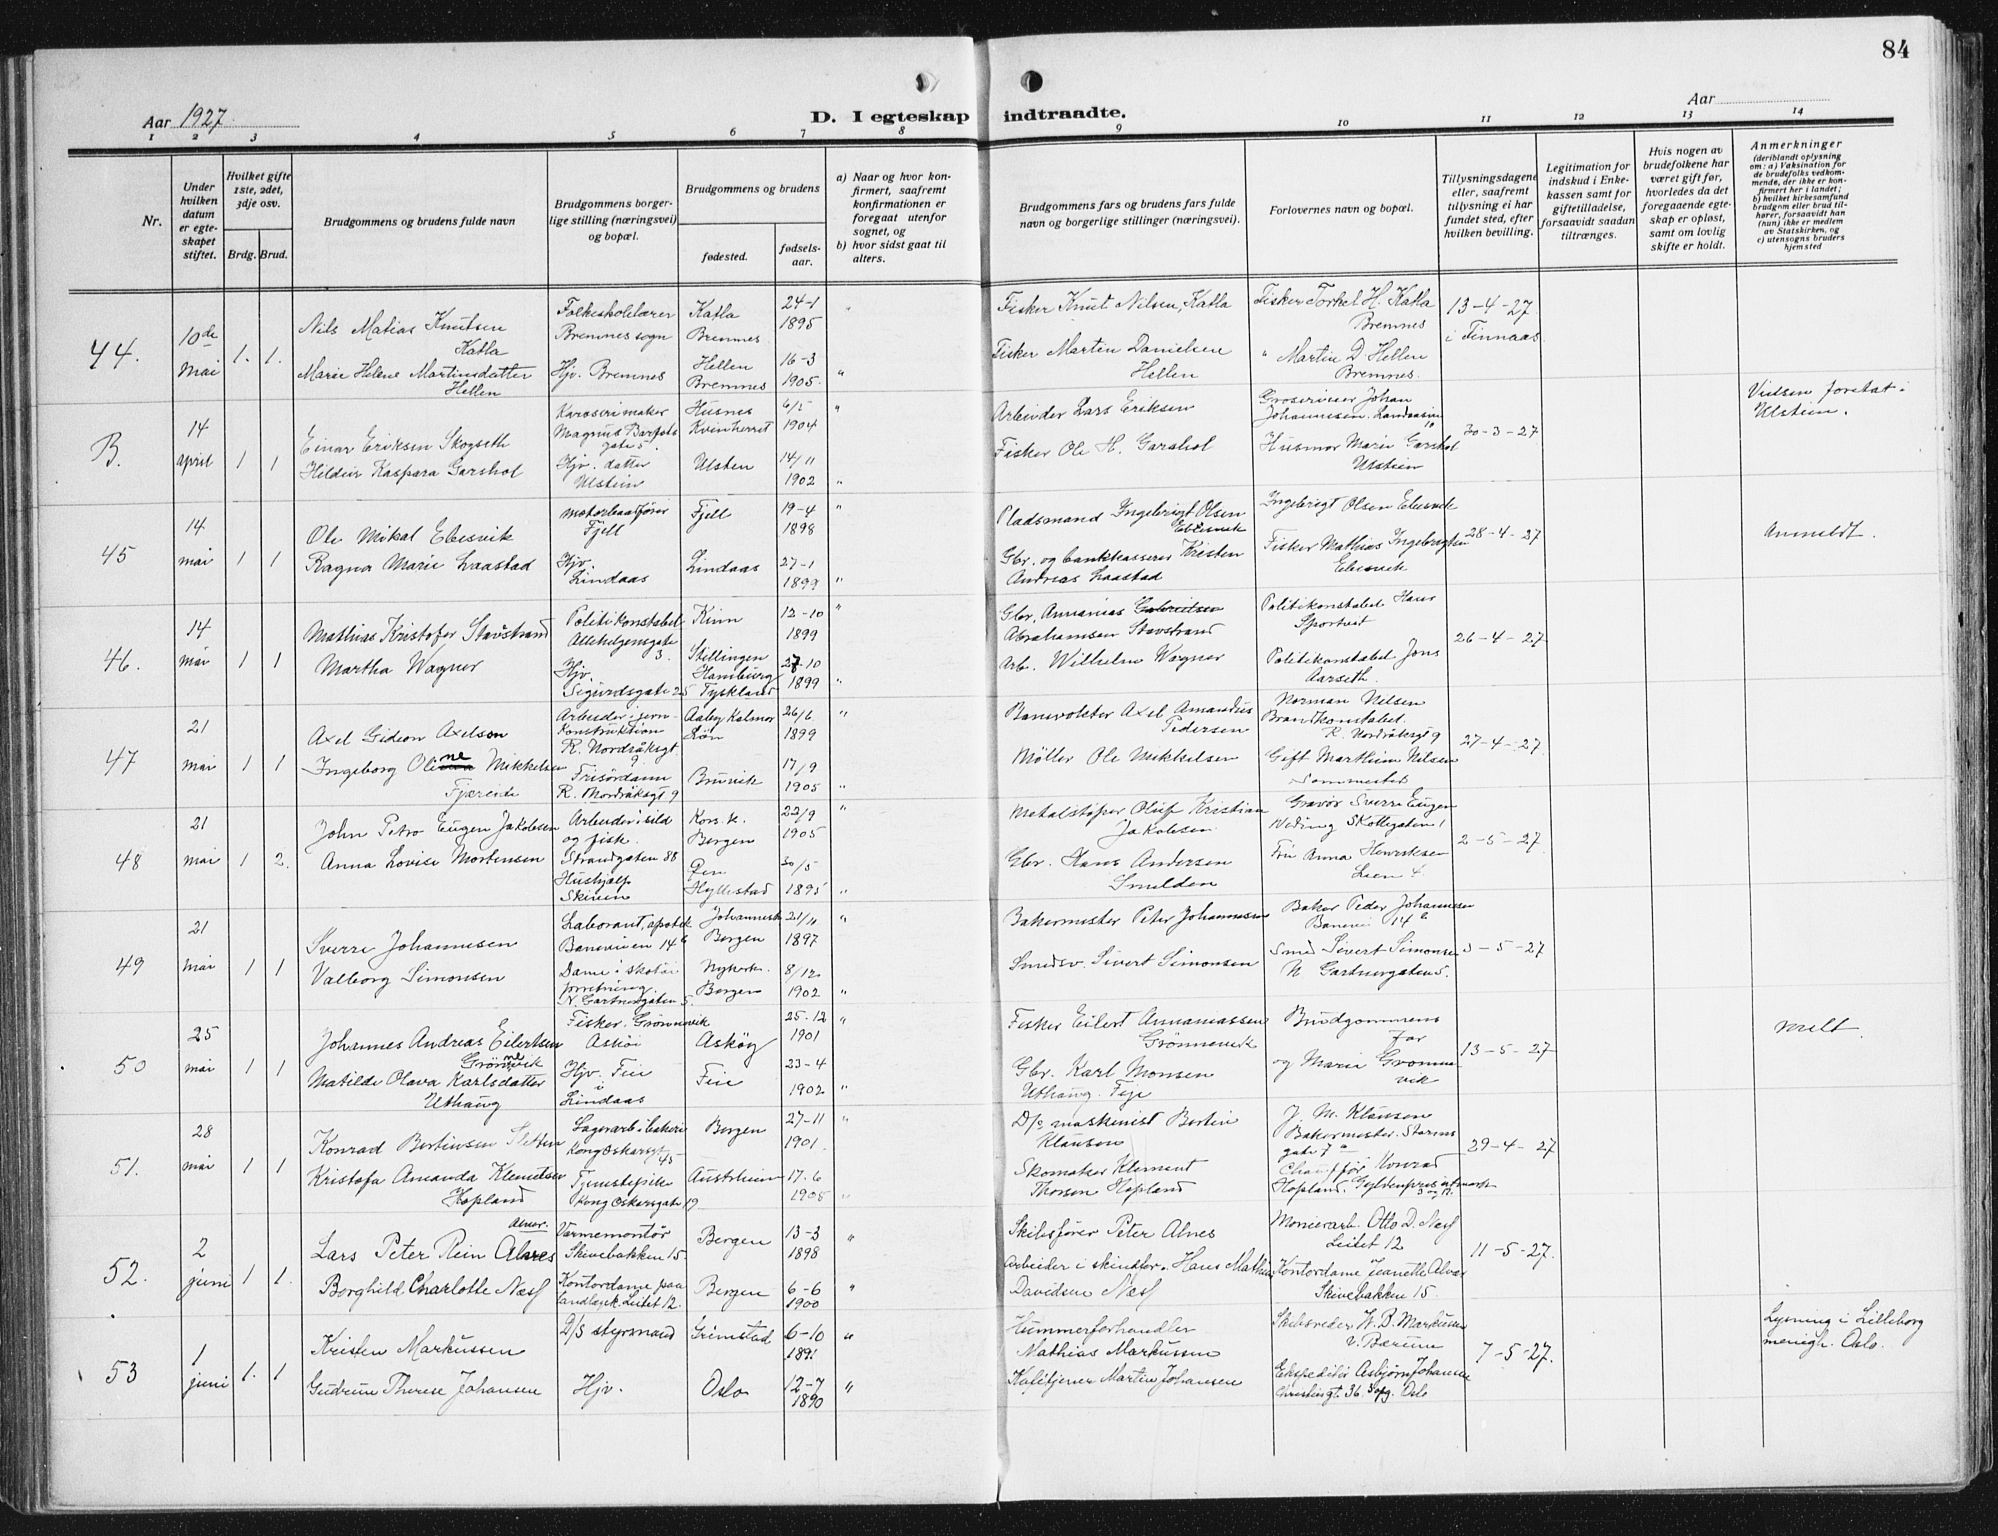 84
Aar 1927.
D. I egteskap indtraadte.
Aar
1 2 3 4 5 6 7 8 9 10 11 12 13 14
Nr.
Under hvilken datum er egte-skapet stiftet.
Hvilket gifte 1ste, 2det, 3dje osv.
Brdg. Brud.
Brudgommens og brudens fulde navn
Brudgommens borger-lige stilling (næringsvei) og bopæl.
Brudgommens og brudens
fødested.
fødsels-aar.
a) Naar og hvor kon-firmert, saafremt konfirmationen er foregaat utenfor sognet, og
b) hvor sidst gaat til alters.
Brudgommens fars og brudens fars fulde navn og borgerlige stillinger (næringsvei).
Forlovernes navn og bopæl.
Tillysningsdagene eller, saafremt tillysning ei har fundet sted, efter hvilken bevilling.
Legitimation for indskud i Enke-kassen samt for giftetilladelse, forsaavidt saadan tiltrænges.
Hvis nogen av brudefolkene har været gift før, hvorledes da det foregaaende egte-skap er opløst, samt om lovlig skifte er holdt.
Anmerkninger
(deriblandt oplysning om: a) Vaksination for de brudefolks vedkom-mende, der ikke er kon-firmert her i landet; b) hvilket kirkesamfund brudgnm eller brud til-hører, forsaavidt han (hun) ikke er medlem av Statskirken, og c) utensogns bruders hjemsted
44. 10de Mai 1. 1.
Nils Matias Knutsen Katla
Folkeskolelærer Bremnes sogn
Katla Bremnes
24-1 1895
Fisker Knut Nilsen, Katla
Fisker Torkel H. Katla Bremnes
13-4-27 i Finnaas
Marie Helene Martinsdatter Hellen
Hjv. Bremnes
Hellen Bremnes
16-3 1905.
Fisker Martin Danielsen Hellen
" Martin D. Hellen Bremnes.
B. 14 april 1 1
Einar Eriksen Skogseth
Karoserimaker Magnus Barfots gate
Husnes Kvinherret
6/5 1904
Arbeider Lars Eriksen
Johan Johannesen.
30-3-27
Vielsen foretat i Ulstein.
Hildur Kaspara Garshol
Hjv. datter Ulstein
Ulsten
14/11 1902
Fisker Ole H. Garshol
Husmor Marie Garshol Ulstein
45 14 mai 1 1
Ole Mikal Ebesvik
Motorbaatfører Fjell
Fjell
19-4 1898
Pladsmand Ingebrigt Olsen Ebesvik
Ingebrigt Olsen Ebesvik
28-4-27
Anmeldt.
Ragna Marie Laastad
Hjv. Lindaas
Lindaas
27-1 1899
Gbr. og bankkasserer Kristen Andreas Laastad
Fisker Mathias Ingebrigtsen Ebesvik
46. 14 mai 1 1
Mathias Kristofer Stavstrand
Politikonstabel Allehelgensgate 3.
Kinn
12-10 1899
Gbr. Annanias Gabrielsen Abrahamsen Stavstrand
Politikonstabel Hans
26-4-27
Martha Wagner
Hjv. Sigurdsgate 25
Stellingen Hamburg Tyskland
27-10 1899
Arb. Wilhelm Wagner
Politikonstabel Jons Aarseth.
47 21 mai 1 1
Axel Gideon Axelson
Arbeider i jern-konstruktion R. Nordråksgt. 9
Aaby Kalmar Län
26/6 1899
Banevokter Axel Amandus Pedersen
Norman Nilsen Brandkonstabel. R. Nordråksgt 9
27-4-27
Ingeborg Oline Mikkelsen Fjæreide
Frisördame R. Nordråksgt 9
Bruvik
17/9 1905
Møller Ole Mikkelsen
Gift Marthine Nilsen
48 21 mai 1 2.
John Petro Eugen Jakobsen
Arbeider i sild og fisk. Strandgaten 88
Kors.k. Bergen
22/9 1905
Metalstøper Oluf Kristian Jakobsen
Gravør Sverre Eugen Weding Skottegaten 1
2-5-27.
Anna Lovise Mortensen
Hushjælp Skiven
Hyllestad
30/5 1895
Gbr. Hans Andersen Smelden
Frü Anna Henriksen Lien 4.
49 21 mai 1 1
Sverre Johannesen
Laborant, apotek Baneveien 14b
Johannesk. Bergen
21/11 1897
Bakermester Peter Johannesen
Baker Peder Johannesen Banevei 14b
3-5-27
Valborg Simonsen
Dame i skotøi forretning. N. Gartnergaten 5.
Nykirk. Bergen
8/12 1902
Smedsv. Sivert Simonsen
Smed Sivert Simonsen N. Gartnergaten 5.
50 25 mai 1 1
Johannes Andreas Eilertsen Grønnevik
Fisker. Grønnevik Askøi
Askøy
25-12 1901
Fisker Eilert Annaniassen Grønnevik
Brudgommens far
13-5-27
melt
Matilde Olava Karlsdatter Uthaug
Hjv. Feie i Lindaas
Feie
23-4 1902
Gbr. Karl Monsen Uthaug. Feje
og Maria Grønnevik
51. 28 mai 1 1
Konrad Bertinsen Sletten
Lagerarb. i bakeri Kong Oskarsgt 45
Bergen
27-11 1901
D/s maskinist Bertin Klausen
J. M. Klausen Bakermester. gate 7a
29-4-27
Kristofa Amanda Klemetsen Hopland
Tjenestepike Kong Oskarsgate 19
Austrheim
17-6 1905
Skomaker Klement Thorsen Hopland
Chauffør Konrad Hopland.
52. 2 juni 1 1.
Alner. Lars Peter Rein Alnes
Varmemontør Skivebakken 15
Bergen
13-3 1898
Skibsfører Peter Alnes
Otto D. Næss Leitet 12
11-5-27.
Borghild Charlotte Næss
Kontordame paa Leitet 12.
Bergen
6-6 1900
Arbeider i skindfor. Hans Mathias Davidsen Næss
Kontordame Jeanette Alnes Skivebakken 15.
53 1 juni 1. 1
Kristen Markussen
D/S styrmand
Grimstad
6-10 1891
Hummerforhandler Mathias Markussen
Skibsreder W. B. Markussen V. Bærum
7-5-27.
Lysning i Lilleborg menigh. Oslo.
Gudrun Therese Johansen
Hjv.
Oslo
12-7 1890
Martin Johansen
Ekspeditør Asbjørn Johansen 36. Oslo